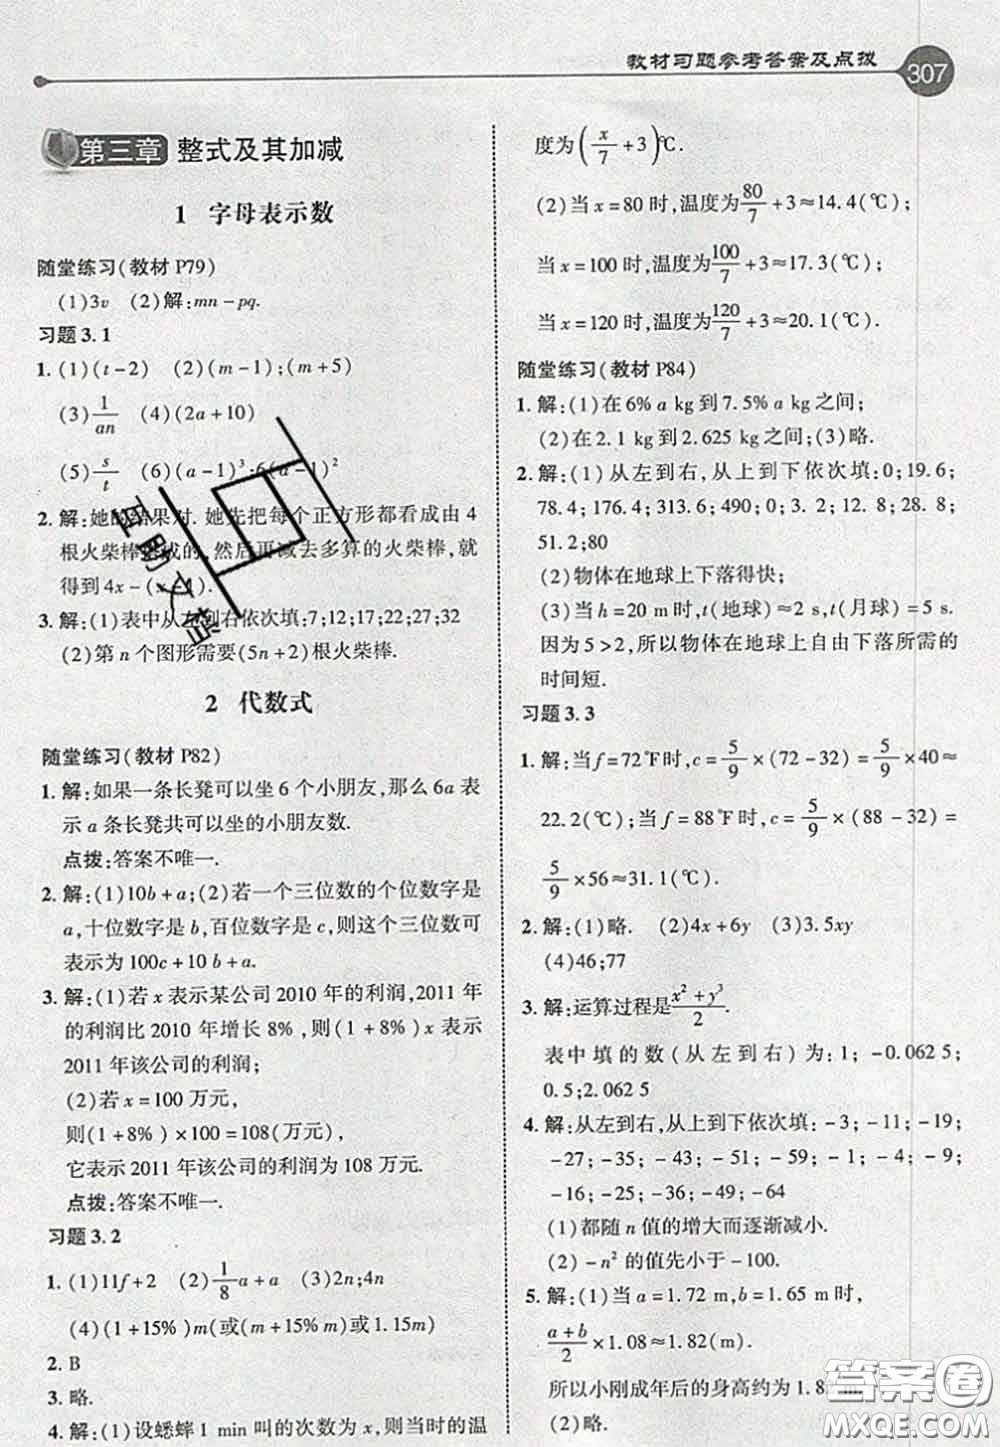 教材习题参考答案及点拨 307
第三章 整式及其加减
1 字母表示数
随堂练习(教材 P79)
(1)3v (2)解:mn-pq.
习题 3.1
1. (1)(t-2) (2)(m-1);(m+5)
(3)1/an (4)(2a+10)
(5)s/t (6)(a-1)³;6(a-1)²
2. 解:她的结果对. 她先把每个正方形都看成由 4
根火柴棒搭成的,然后再减去多算的火柴棒,就
得到 4x-(x-1).
3. 解:(1)表中从左到右依次填:7;12;17;22;27;32
(2)第 n 个图形需要(5n+2)根火柴棒.
2 代数式
随堂练习(教材 P82)
1. 解:如果一条长凳可以坐 6 个小朋友,那么 6a 表
示 a 条长凳共可以坐的小朋友数.
点拨:答案不唯一.
2. 解:(1)10b+a;(2)若一个三位数的个位数字是
a,十位数字是 b,百位数字是 c,则这个三位数可
表示为 100c+10b+a.
3. 解:(1)若 x 表示某公司 2010 年的利润,2011 年
的利润比 2010 年增长 8%,则(1+8%)x 表示
2011 年该公司的利润;
(2)若 x=100 万元,
则(1+8%)×100=108(万元),
它表示 2011 年该公司的利润为 108 万元.
点拨:答案不唯一.
习题 3.2
1. (1)11f+2 (2)1/8a+a (3)2n;4n
(4)(1+15%)m(或(m+15%m)或 1.15m)
2. B
3. 略.
4. 解:(1)设蟋蟀 1 min 叫的次数为 x,则当时的温
度为(x/7+3)℃.
(2)当 x=80 时,温度为80/7+3≈14.4(℃);
当 x=100 时,温度为100/7+3≈17.3(℃);
当 x=120 时,温度为120/7+3≈20.1(℃).
随堂练习(教材 P84)
1. 解:(1)在 6%a kg 到 7.5%a kg 之间;
(2)在 2.1 kg 到 2.625 kg 之间;(3)略.
2. 解:(1)从左到右,从上到下依次填:0;19.6;
78.4;176.4;313.6;490;0;3.2;12.8;28.8;
51.2;80
(2)物体在地球上下落得快;
(3)当 h=20 m 时,t(地球)≈2 s,t(月球)=5 s.
因为 5>2,所以物体在地球上自由下落所需的
时间短.
习题 3.3
1. 解:当 f=72℉时,c=5/9×(72-32)=5/9×40≈
22.2(℃);当 f=88℉时,c=5/9×(88-32)=
5/9×56≈31.1(℃).
2. 解:(1)略. (2)4x+6y (3)3.5xy
(4)46;77
3. 解:运算过程是(x²+y³)/2.
表中填的数(从左到右)为:1;-0.062 5;
0.5;2.062 5
4. 解:从左到右,从上到下依次填:-3;-11;-19;
-27;-35;-43;-51;-59;-1;-4;-9;
-16;-25;-36;-49;-64
(1)都随 n 值的增大而逐渐减小.
(2)-n² 的值先小于-100.
5. 解:(1)当 a=1.72 m,b=1.65 m 时,
(a+b)/2×1.08≈1.82(m).
所以小刚成年后的身高约为 1.82 m.
(2)略.
答案卷
MXQE.COM